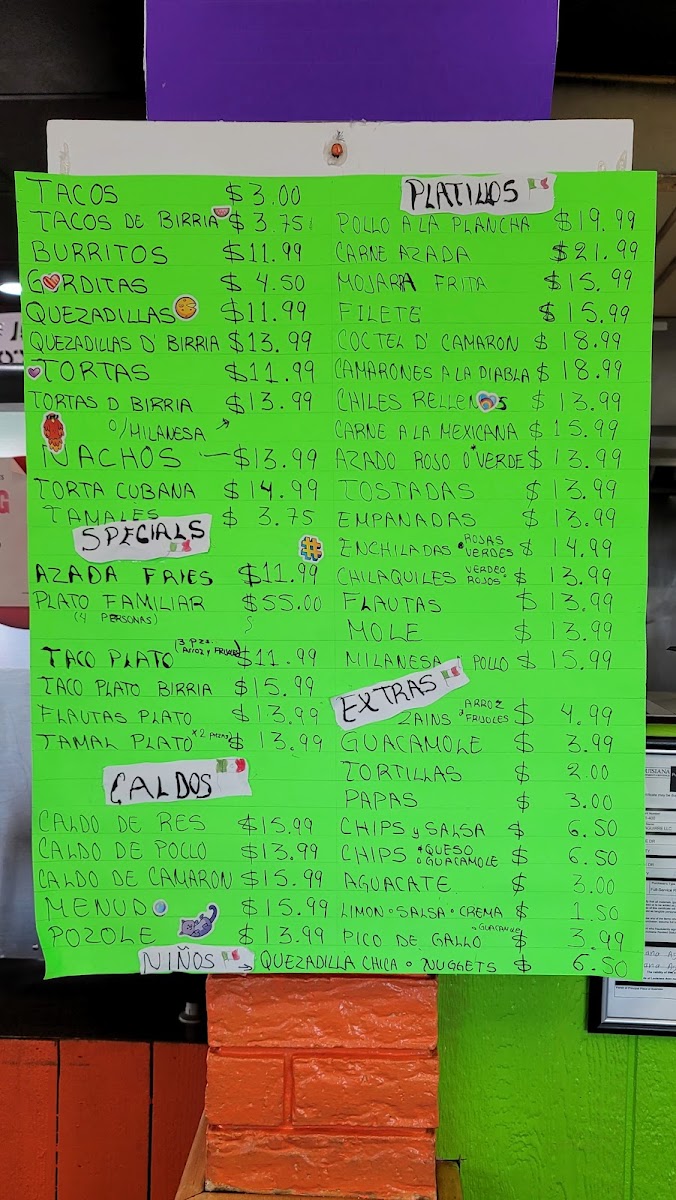 TACOS $3.00
TACOS DE BIRRIA $3.75
BURRITOS $11.99
GORDITAS $4.50
QUEZADILLAS $11.99
QUEZADILLAS D' BIRRIA $13.99
TORTAS $11.99
TORTAS D BIRRIA $13.99
O/MILANESA
NACHOS $13.99
TORTA CUBANA $14.99
TAMALES $3.75
SPECIALS
#
AZADA FRIES $11.99
PLATO FAMILIAR $55.00
(4 PERSONAS)
TACO PLATO (3 pza. Arroz y FRIJOLES) $11.99
TACO PLATO BIRRIA $15.99
FLAUTAS PLATO $13.99
TAMAL PLATO $13.99
CALDOS
CALDO DE RES $15.99
CALDO DE POLLO $13.99
CALDO DE CAMARON $15.99
MENUDO $15.99
POZOLE $13.99
PLATILLOS
POLLO A LA PLANCHA $19.99
CARNE AZADA $21.99
MOJARRA FRITA $15.99
FILETE $15.99
COCTEL D' CAMARON $18.99
CAMARONES A LA DIABLA $18.99
CHILES RELLENOS $13.99
CARNE A LA MEXICANA $15.99
AZADO ROJO O VERDE $13.99
TOSTADAS $13.99
EMPANADAS $13.99
ENCHILADAS ROJAS VERDES $14.99
CHILAQUILES VERDEO ROJOS $13.99
FLAUTAS $13.99
MOLE $13.99
MILANESA POLLO $15.99
EXTRAS
ARROZ FRIJOLES $4.99
GUACAMOLE $3.99
TORTILLAS $2.00
PAPAS $3.00
CHIPS y SALSA $6.50
CHIPS QUESO O GUACAMOLE $6.50
AGUACATE $3.00
LIMON SALSA CREMA $1.50
PICO DE GALLO $3.99
NIÑOS → QUEZADILLA CHICA O NUGGETS $6.50